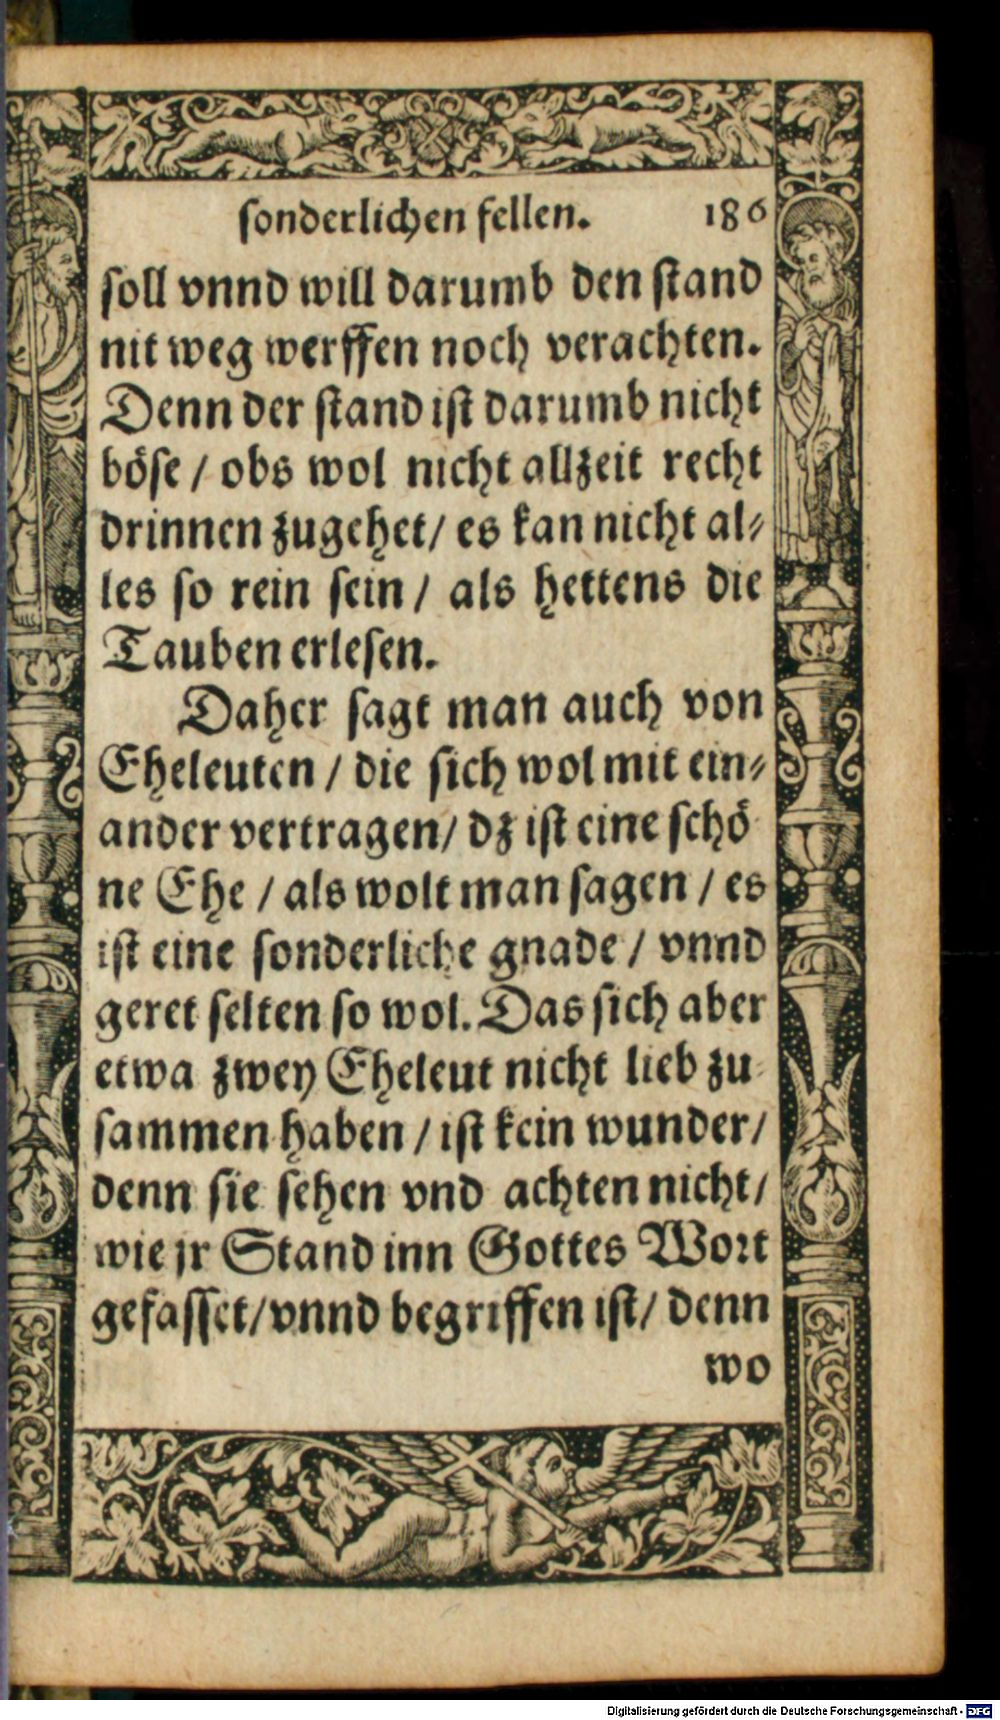 sonderlichen fellen. 186
soll vnnd will darumb den stand
nit weg werffen noch verachten.
Denn der stand ist darumb nicht
böse / obs wol nicht allzeit recht
drinnen zugehet / es kan nicht al⸗
les so rein sein / als hettens die
Tauben erlesen.
Daher sagt man auch von
Eheleuten / die sich wol mit ein⸗
ander vertragen / dz ist eine schö
ne Ehe / als wolt man sagen / es
ist eine sonderliche gnade / vnnd
geret selten so wol. Das sich aber
etwa zwey Eheleut nicht lieb zu
sammen haben / ist kein wunder /
denn sie sehen vnd achten nicht /
wie jr Stand inn Gottes Wort
gefasset / vnnd begriffen ist / denn
wo
Digitalisierung gefördert durch die Deutsche Forschungsgemeinschaft - DFG